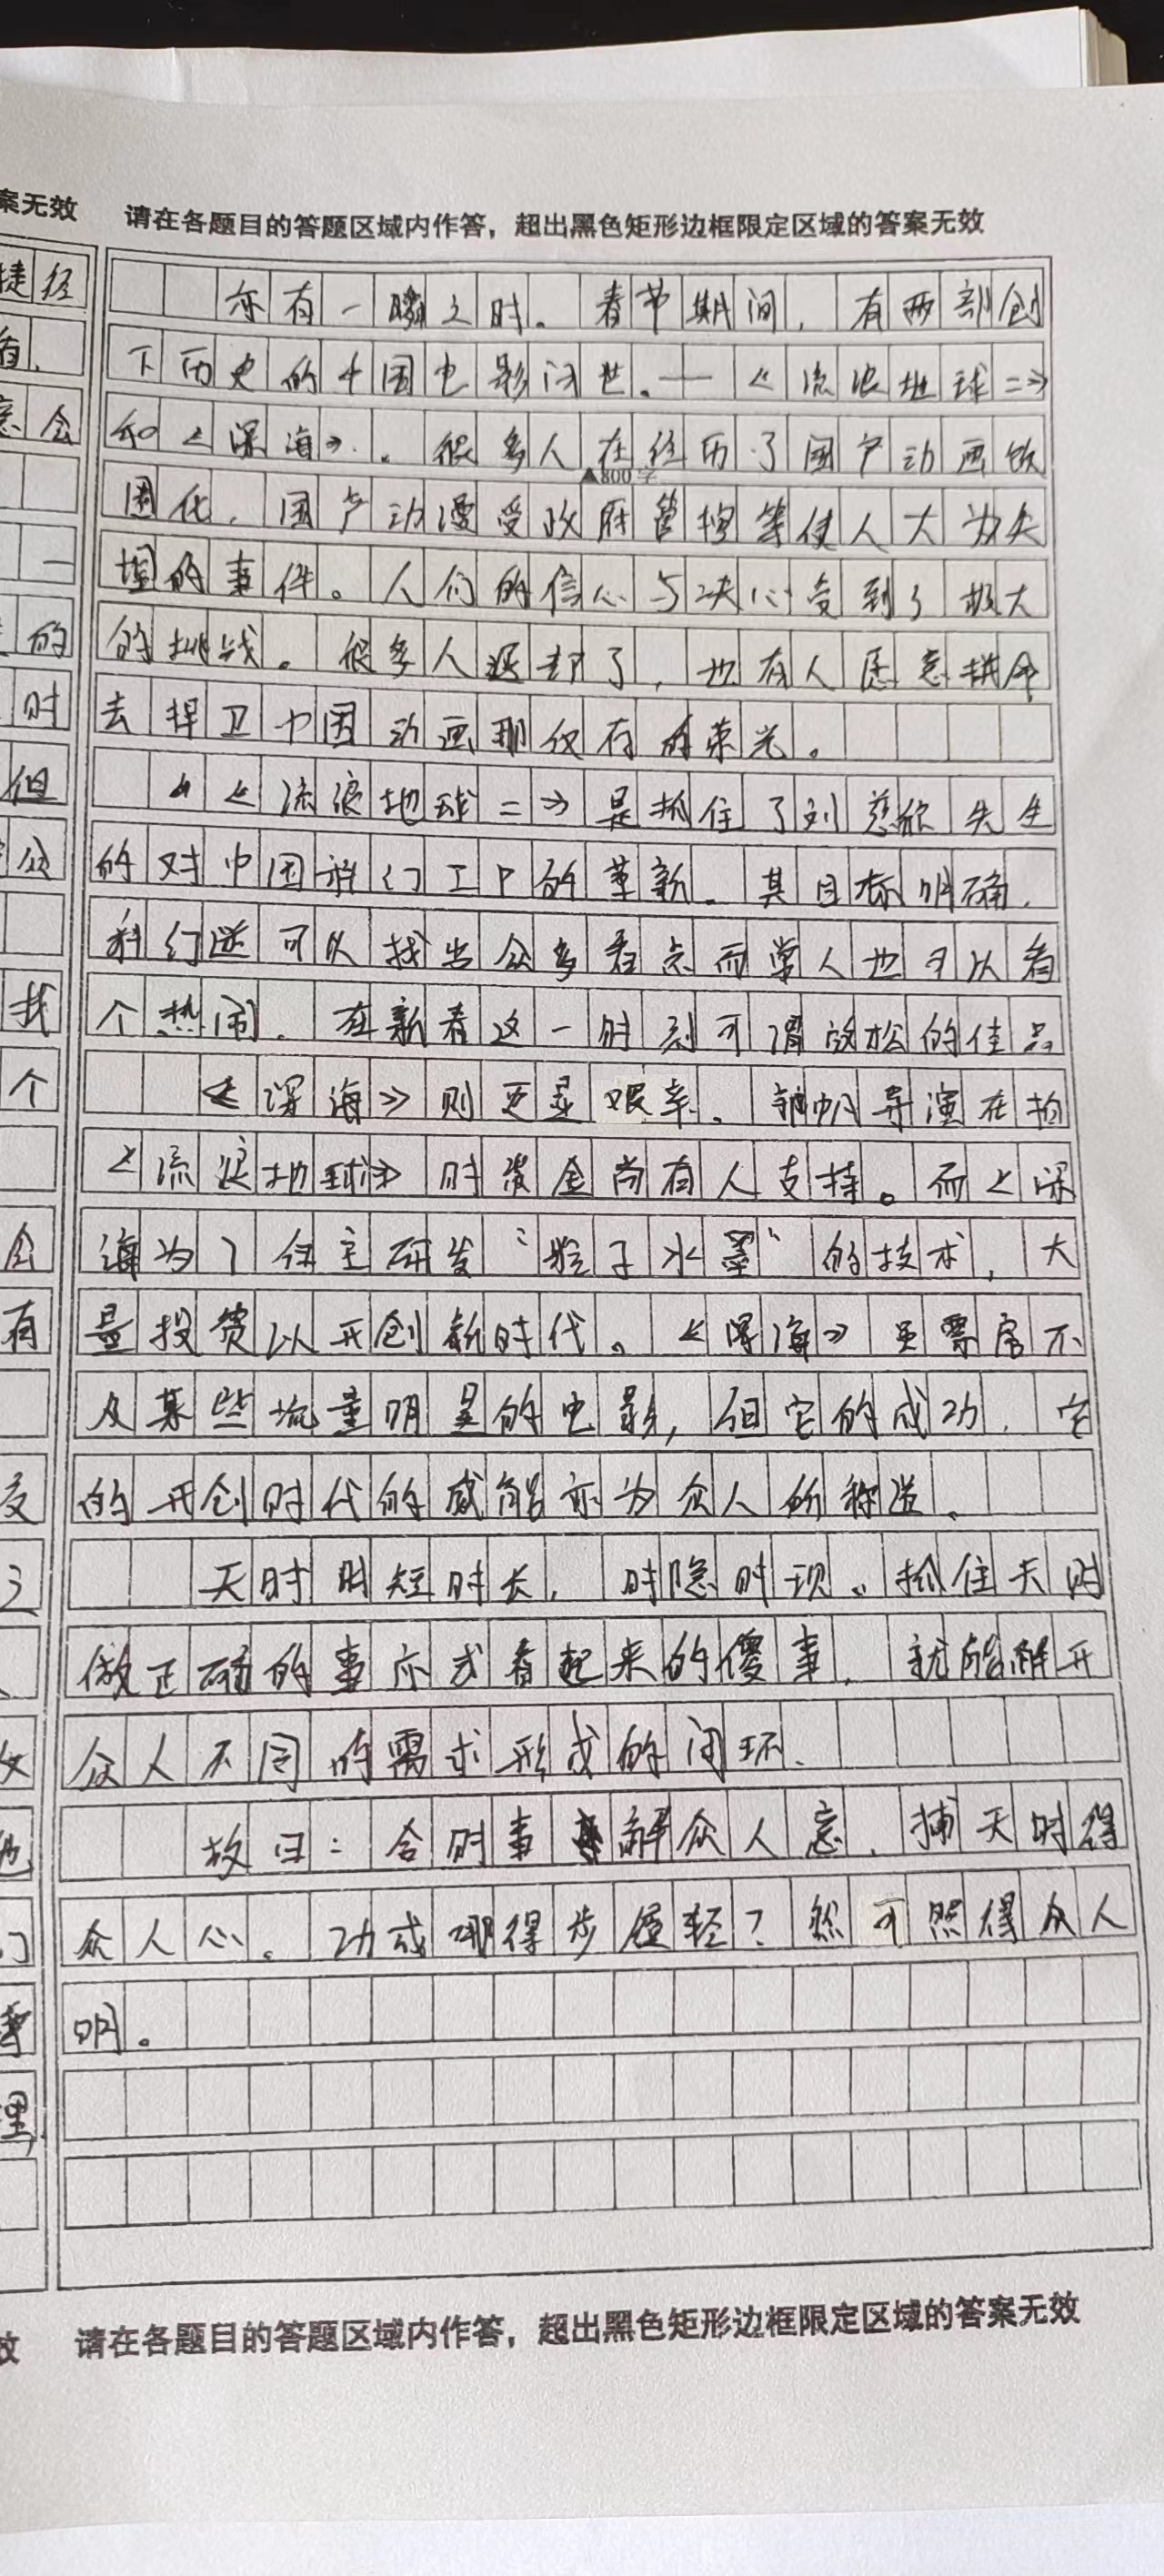 案无效 请在各题目的答题区域内作答，超出黑色矩形边框限定区域的答案无效
捷径
意会
一
的
时
但
众
我
个
会
有
亦有一瞬之时。春节期间，有两部创
下历史的中国电影问世。——《流浪地球二》
和《深海》。很多人在经历了国产动画
▲800字
固化，国产动漫受政府管控等使人大为失
望的事件。人们的信心与决心受到了极大
的挑战。很多人退却了，也有人愿意拼命
去捍卫中国动画那仅存的荣光。
《流浪地球二》是抓住了刘慈欣先生
的对中国科幻工中的革新。其目标明确，
科幻迷可以找出众多看点而常人也可以看
个热闹。在新春这一时刻可谓放松的佳品
《深海》则更显艰辛。郭帆导演在拍
《流浪地球》时资金尚有人支持。而《深
海为了自主研发“粒子水墨”的技术，大
量投资以开创新时代。《深海》虽票房不
及某些流量明星的电影，但它的成功，它
的开创时代的威能亦为众人所称道。
天时时短时长，时隐时现。抓住天时
做正确的事亦或看起来的傻事，就能解开
众人不同的需求形成的闭环。
故曰：合时事解众人忘，捕天时得
众人心。功成哪得步履轻？然可然得众人
明。
请在各题目的答题区域内作答，超出黑色矩形边框限定区域的答案无效